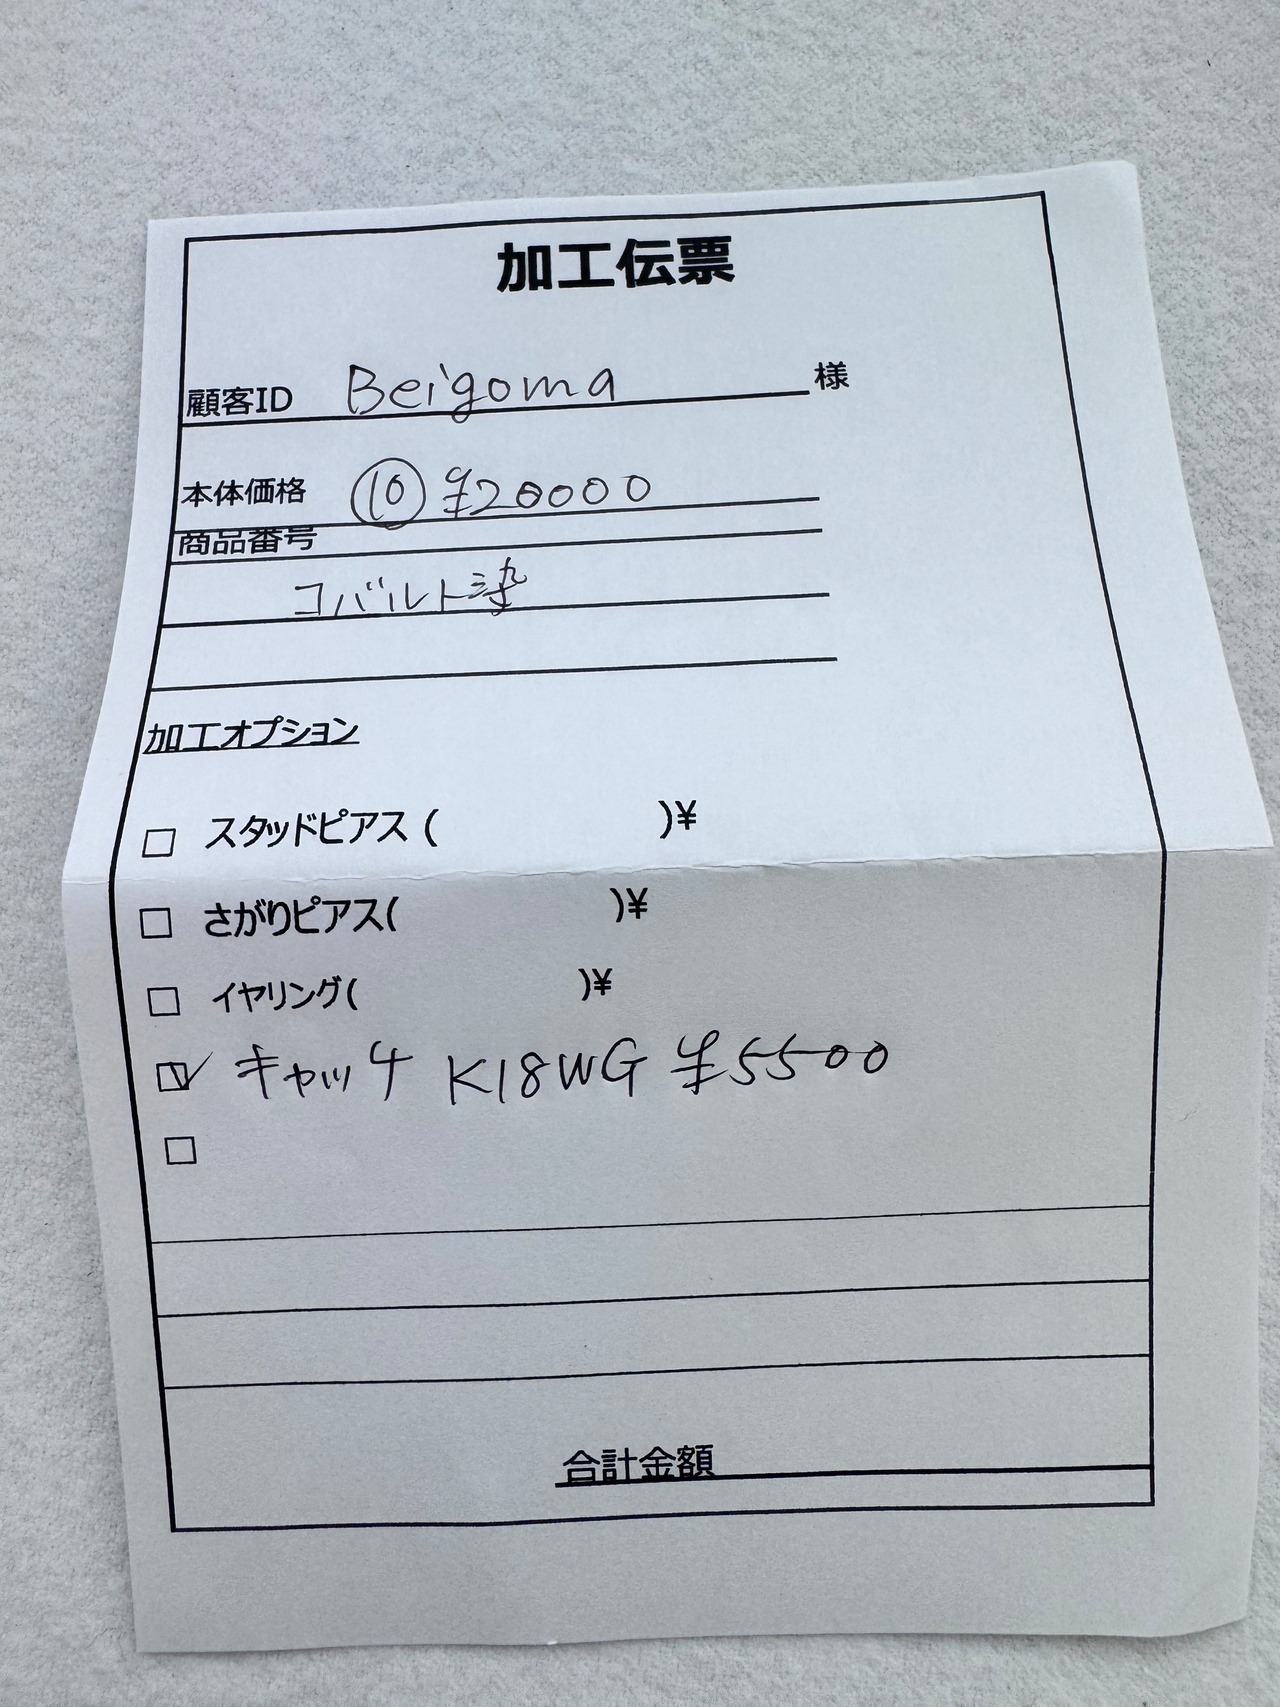 加工伝票
顧客ID Beigoma 様
本体価格 ⑩ ¥20000
商品番号
コバルト染
加工オプション
☐ スタッドピアス ( )¥
☐ さがりピアス( )¥
☐ イヤリング( )¥
☑ キャッチ K18WG ¥5500
☐
合計金額